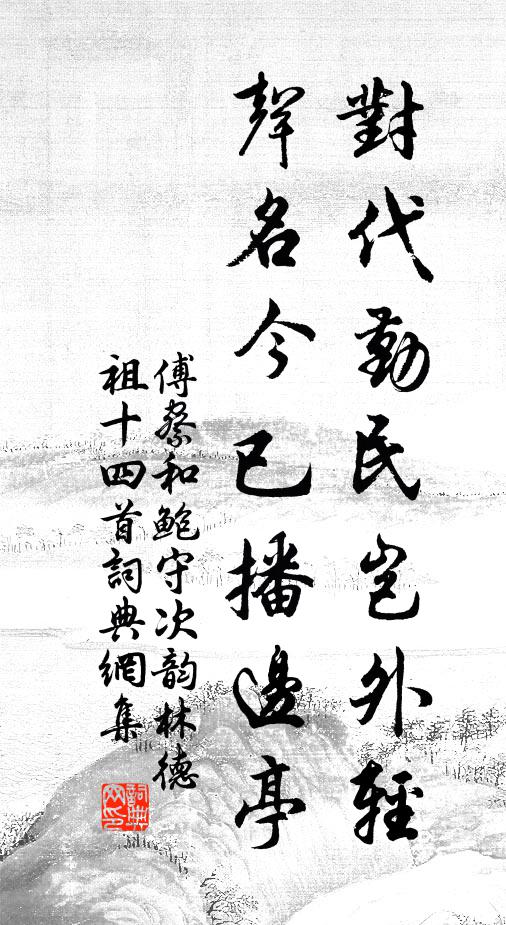 對代勤民豈外輕
聲名今已播邊亭
傅察和鮑守次韵林德
祖十四首詞典網集
詞典网印